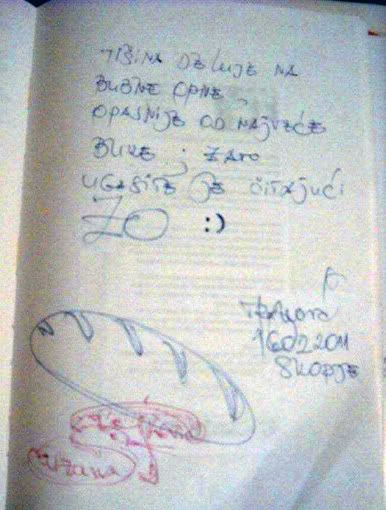 TIŠINA DELUJE NA
BUBNE OPNE,
OPASNIJE OD NAJVEĆE
BUKE; ZATO
UGASITE JE ČITAJUĆI
ZO :)
16022011
SKOPJE
hrana